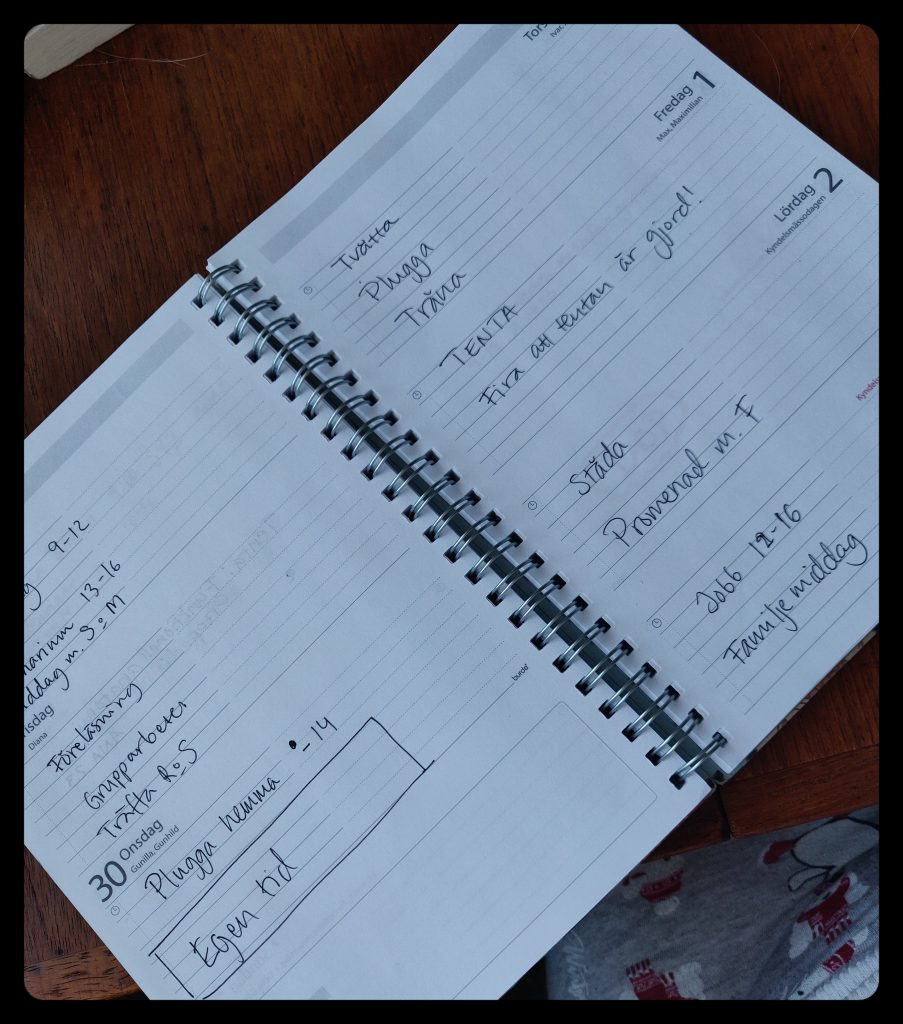 9-12
narium 13-16
iddag m. S o M
isdag
Diana
Föreläsning
Grupparbeter
Träffa R o S
30 Onsdag
Gunilla, Gunhild
Plugga hemma -14
Egen tid
burde
Tors
Tvätta
Plugga
Träna
Fredag 1
Max, Maximilian
TENTA
Fira att tentan är gjord!
Lördag 2
Kyndelsmässodagen
Städa
Promenad m. F
Kyndels
Jobb 12-16
Familje middag